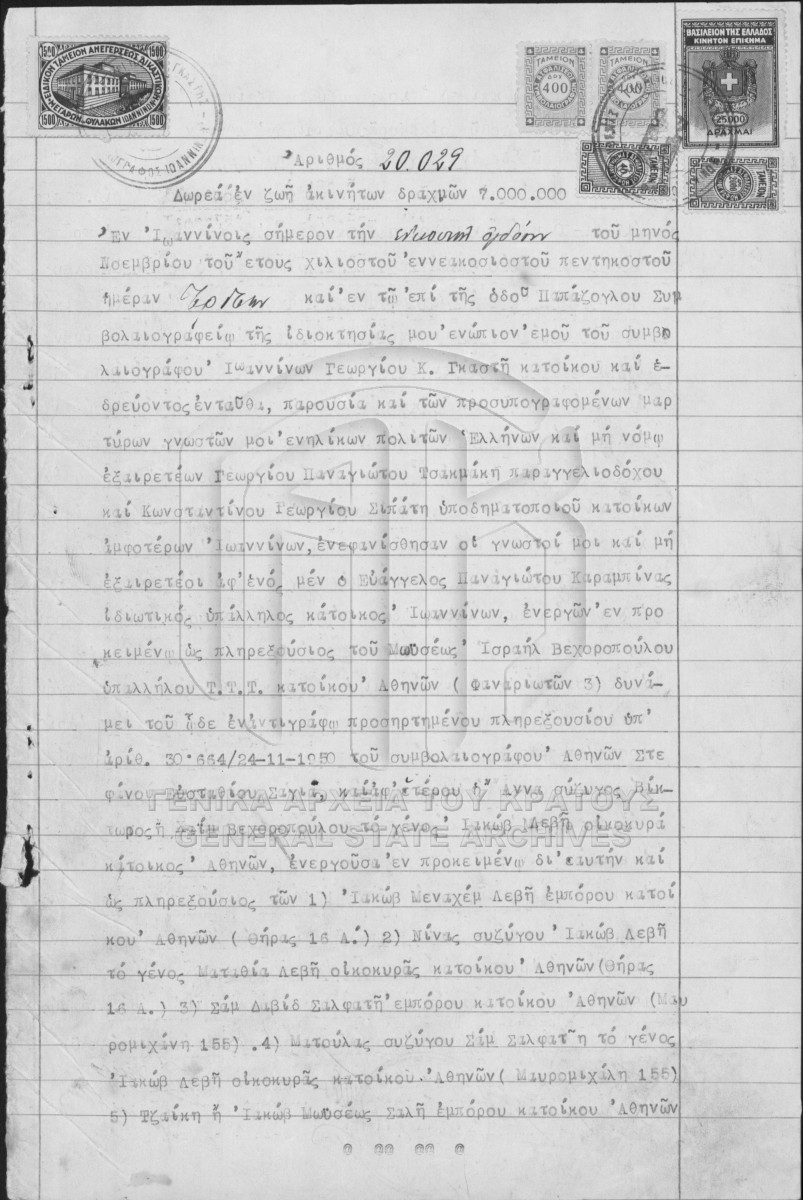 1500 1500
ΕΙΔΙΚΟΝ ΤΑΜΕΙΟΝ ΑΝΕΓΕΡΣΕΩΣ ΔΙΚΑΣΤΙΚΟΥ
ΜΕΓΑΡΟΥ ΦΥΛΑΚΩΝ ΙΩΑΝΝΙΝΩΝ
1500 1500
ΤΑΜΕΙΟΝ ΤΑΜΕΙΟΝ
400 400
ΒΑΣΙΛΕΙΟΝ ΤΗΣ ΕΛΛΑΔΟΣ
ΚΙΝΗΤΟΝ ΕΠΙΣΗΜΑ
25000
ΔΡΑΧΜΑΙ
Ἀριθμός 20.029
Δωρεά ἐν ζωῇ ἀκινήτων δραχμῶν 7.000.000
Ἐν Ἰωαννίνοις σήμερον τήν εἰκοστήν ὀγδόην τοῦ μηνός
Νοεμβρίου τοῦ ἔτους χιλιοστοῦ ἐννεακοσιοστοῦ πεντηκοστοῦ
ἡμέραν Τρίτην καί ἐν τῷ ἐπί τῆς ὁδοῦ Παπάζογλου Συμ
βολαιογράφείῳ τῆς ἰδιοκτησίας μου ἐνώπιον ἐμοῦ τοῦ συμβο
λαιογράφου Ἰωαννίνων Γεωργίου Κ. Γκαστῆ κατοίκου καί ἑ-
δρεύοντος ἐνταῦθα, παρουσία καί τῶν προσυπογραφομένων μαρ
τύρων γνωστῶν μοι ἐνηλίκων πολιτῶν Ἑλλήνων καί μή νόμῳ
ἐξαιρετέων Γεωργίου Παναγιώτου Τσακμάκη παραγγελιοδόχου
καί Κωνσταντίνου Γεωργίου Σιπάτη ὑποδηματοποιοῦ κατοίκων
ἀμφοτέρων Ἰωαννίνων, ἐνεφανίσθησαν οἱ γνωστοί μοι καί μή
ἐξαιρετέοι ἀφ' ἑνός μέν ὁ Εὐάγγελος Παναγιώτου Καραμπίνας
ἰδιωτικός ὑπάλληλος κάτοικος Ἰωαννίνων, ἐνεργῶν ἐν προ
κειμένῳ ὡς πληρεξούσιος τοῦ Μωϋσέως Ἰσραήλ Βεχοροπούλου
ὑπαλλήλου Τ.Τ.Τ. κατοίκου Ἀθηνῶν ( Φαναριωτῶν 3) δυνά-
μει τοῦ ὧδε ἐν ἀντιγράφῳ προσηρτημένου πληρεξουσίου ὑπ'
ἀρίθ. 30.664/24-11-1950 τοῦ συμβολαιογράφου Ἀθηνῶν Στε
φάνου Εὐσταθίου Σαγιᾶ, καί ἀφ' ἑτέρου ἡ Ἄννα σύζυγος Βίκ-
τωρος ἤ Χαΐμ Βεχοροπούλου τό γένος Ἰακώβ Λεβῆ οἰκοκυρά
κάτοικος Ἀθηνῶν, ἐνεργοῦσα ἐν προκειμένῳ δι' ἑαυτήν καί
ὡς πληρεξούσιος τῶν 1) Ἰακώβ Μεναχέμ Λεβῆ ἐμπόρου κατοί
κου Ἀθηνῶν ( Θήρας 16 Α.) 2) Νίνας συζύγου Ἰακώβ Λεβῆ
τό γένος Ματαθία Λεβῆ οἰκοκυρᾶς κατοίκου Ἀθηνῶν(Θήρας
16 Α.) 3) Σάμ Δαβίδ Σαλφατῆ ἐμπόρου κατοίκου Ἀθηνῶν (Μαυ
ρομιχάλη 155) .4) Ματούλας συζύγου Σάμ Σαλφατῆ τό γένος
Ἰακώβ Λεβῆ οἰκοκυρᾶς κατοίκου Ἀθηνῶν( Μαυρομιχάλη 155)
5) Τζαίκη ἤ Ἰακώβ Μωϋσέως Σαλῆ ἐμπόρου κατοίκου Ἀθηνῶν
ΓΕΝΙΚΑ ΑΡΧΕΙΑ ΤΟΥ ΚΡΑΤΟΥΣ
GENERAL STATE ARCHIVES